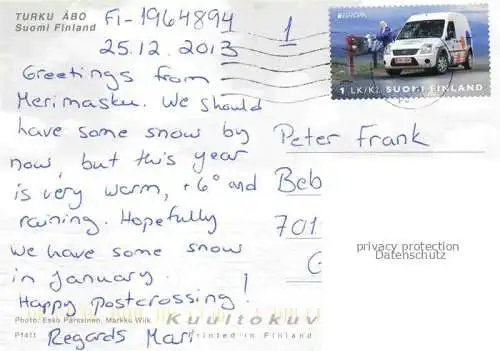 TURKU ÅBO
Suomi Finland
FI-1964894
25.12.2013
1
EUROPA
1 LK/KL SUOMI FINLAND
Greetings from
Merimasku. We should
have some snow by
now, but this year
is very warm, +6° and
raining. Hopefully
we have some snow
in January.
Happy Postcrossing!
Regards Mari
Peter Frank
Beb
701
G
privacy protection
Datenschutz
Photo: Esko Pärssinen, Markku Wik
Kuultokuv
Printed in Finland